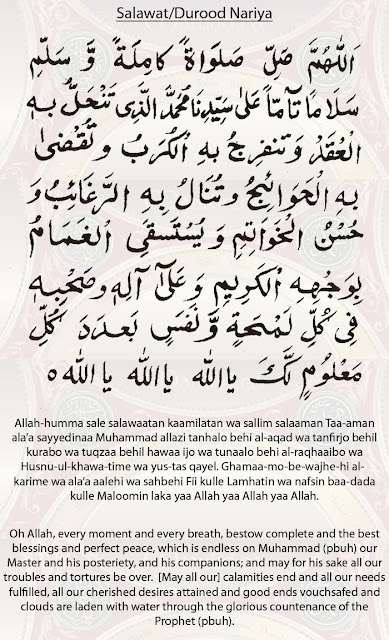 Salawat/Durood Nariya
اَللّٰهُمَّ صَلِّ صَلَوَاةً كَامِلَةً وَّ سَلِّمْ
سَلَامًا تَآمًّا عَلٰى سَيِّدِنَا مُحَمَّدَ الَّذِىْ تَنْحَلُّ بِهِ
الْعُقَدُ وَ تَنْفَرِجُ بِهِ الْكُرَبُ وَ تُقْضٰى
بِهِ الْحَوَائِجُ وَ تُنَالُ بِهِ الرَّغَائِبُ وَ
حُسْنُ الْخَوَاتِمِ وَ يُسْتَسْقَى الْغَمَامُ
بِوَجْهِهِ الْكَرِيْمِ وَ عَلٰٓى آلِهٖ وَ صَحْبِهٖ
فِىْ كُلِّ لَمْحَةٍ وَّ نَفَسٍ بِعَدَدِ كُلِّ
مَعْلُوْمٍ لَّكَ يَا اَللهُ يَا اَللهُ يَا اَللهُ ٥
Allah-humma sale salawaatan kaamilatan wa sallim salaaman Taa-aman
ala'a sayyedinaa Muhammad allazi tanhalo behi al-aqad wa tanfirjo behil
kurabo wa tuqzaa behil hawaa ijo wa tunaalo behi al-raqhaaibo wa
Husnu-ul-khawa-time wa yus-tas qayel. Ghamaa-mo-be-wajhe-hi al-
karime wa ala'a aalehi wa sahbehi Fii kulle Lamhatin wa nafsin baa-dada
kulle Maloomin laka yaa Allah yaa Allah yaa Allah.
Oh Allah, every moment and every breath, bestow complete and the best
blessings and perfect peace, which is endless on Muhammad (pbuh) our
Master and his posteriety, and his companions; and may for his sake all our
troubles and tortures be over. [May all our] calamities end and all our needs
fulfilled, all our cherished desires attained and good ends vouchsafed and
clouds are laden with water through the glorious countenance of the
Prophet (pbuh).